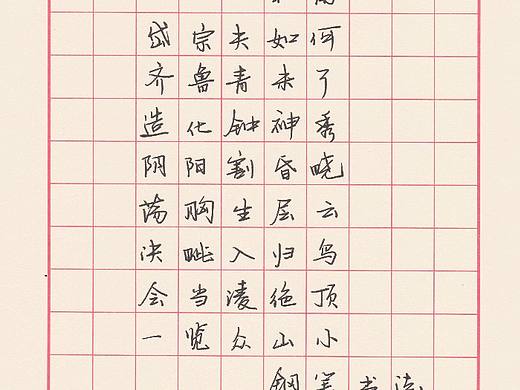 岱宗夫如何
齐鲁青未了
造化钟神秀
阴阳割昏晓
荡胸生层云
决眦入归鸟
会当凌绝顶
一览众山小
钢笔书法